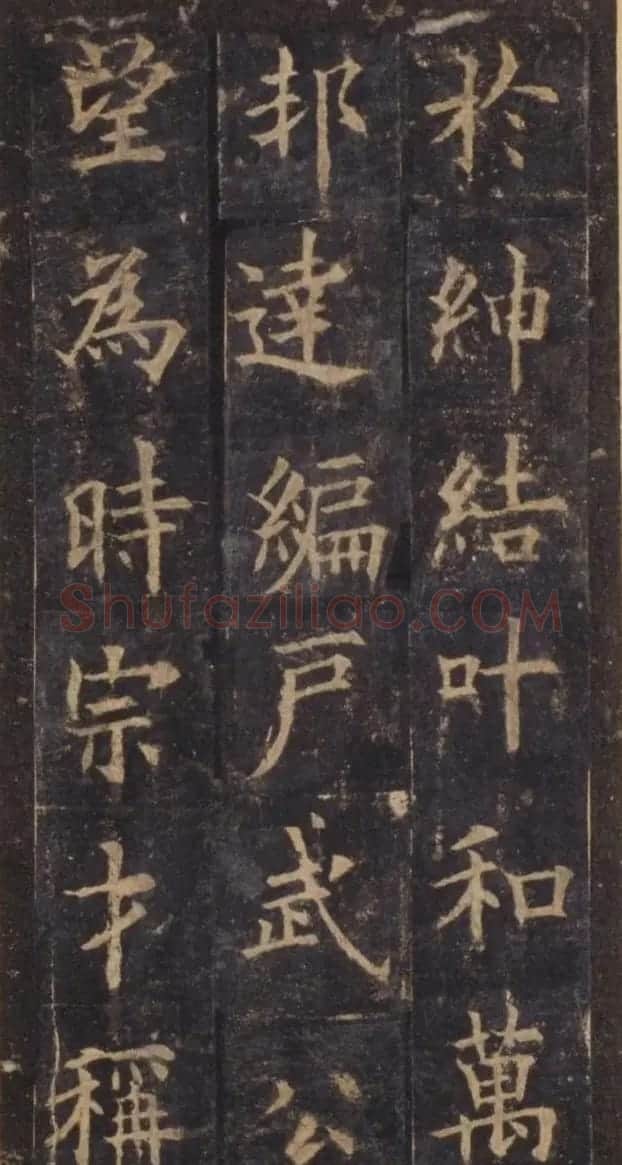 於紳結叶和萬
邦達編戶武公
望為時宗才稱
Shufaziliao.COM